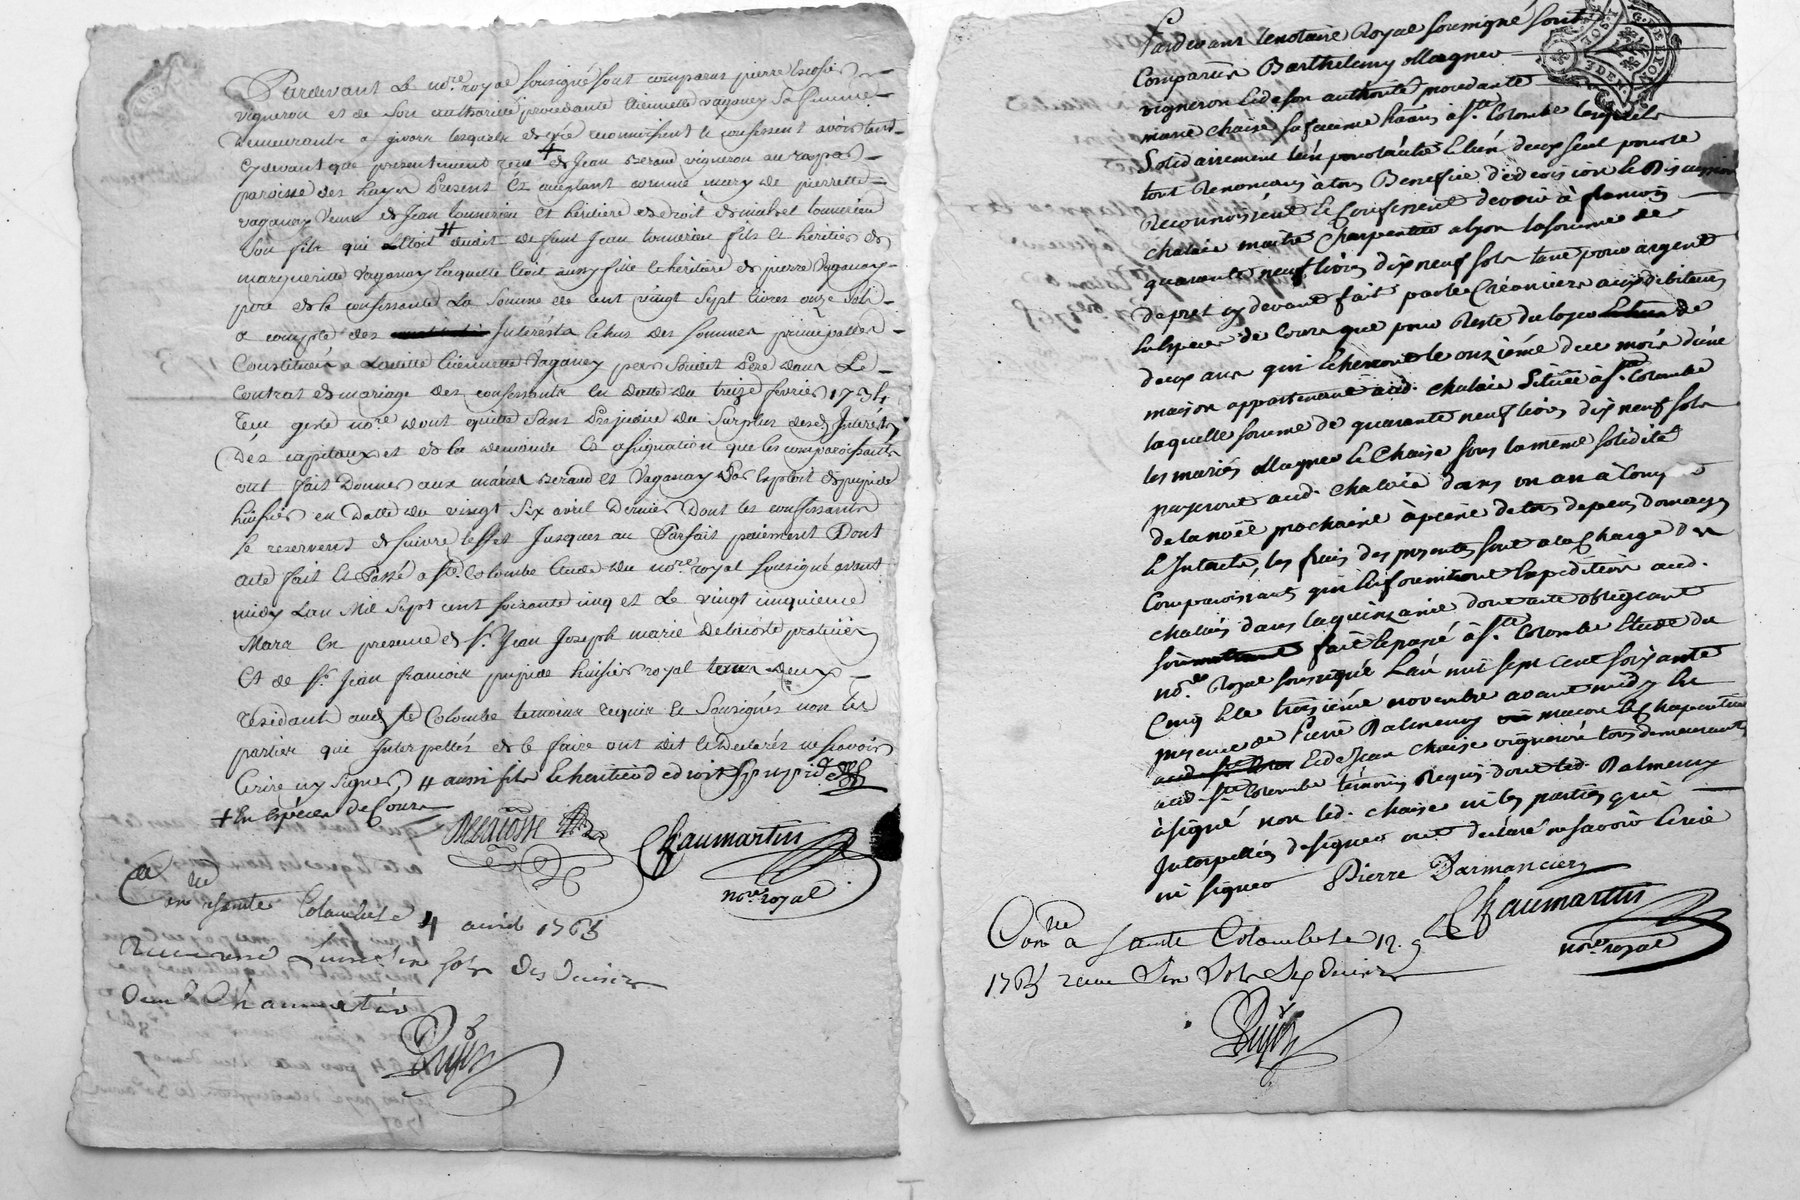 Pardevant Le no.re royal sousigné sont comparus pierre
vigneron et de son authorité procedante Etiennette vaganay Sa femme
Demeurants a givors lesquels de gré reconnoissent et confessent avoir tant
cydevant que presentement reçu + de Jean Beraud vigneron au
paroisse des hayes Present et aceptant comme mary de pierrette
vaganay veuve de Jean tonnerieu et héritiere de droit de tonnerieu
Son fils qui Etoit # dudit defunt Jean tonnerieu fils et héritier de
marguerite vaganay laquelle Etoit aussy fille et héritiere de pierre Vaganay
pere de la confessante La Somme de Cent vingt Sept livres onze sols
a compte des Interests Echus des sommes principalles
Constituées a Laditte Etiennette Vaganay par Sondit Pere dans Le
Contrat de mariage des confessants en datte du treize fevrier 1734
reçu geste no.re dont quitte sans Prejudice du Surplus desd. Interets
Des capitaux et de la demande et assignation que les comparoissants
ont fait Donner aux mariés Beraud et Vaganay Par Exploit de pupide
huissier en datte du vingt Six avril Dernier Dont les confessants
se reservent de suivre leffet Jusques au Parfait paiement Dont
acte fait et Passé a Ste. Colombe Etude du no.re royal sousigné avant
midy Lan Mil Sept cent soixante cinq et Le vingt cinquieme
Mars En presence de Sr. Jean Joseph marie Delacoste praticien
Et de Sr. Jean francois pupide huissier royal tous deux
résidants aud. Ste Colombe temoins requis et Sousignés non les
parties qui Interpellés de le faire ont dit et declaré ne sçavoir
Ecrire ny Signer, # aussi fils et héritier de droit
+ En Espèces de Cours
Delacoste
Chaumartin
no.re royal
Con.lle a sainte Colombe Le 4 avril 1765
sols Six deniers
Chaumartin
Pardevant le notaire Royal soussigné sont
Comparus Barthelemy Magnet
vigneron et de son authorité procedante
marie chaise sa femme à Ste. Colombe lesquels
Solidairement l'un pour l'autre et l'un d'eux seul pour le
tout Renoncant à tous Benefice d'édivision et de Discussion
Reconnoissent et Confessent devoir à francois
chalais maitre Charpentier a lyon la somme de
quarante neuf livres dix neuf sols tant pour argent
de pret cy devant fait par le Créancier aux débiteurs
En Espece de Cours que pour Reste du loyer de
deux ans qui Echeront le onzieme du mois d'une
maison appartenante aud. chalais Située à Ste. Colombe
laquelle somme de quarante neuf livres dix neuf sols
les mariés Magnet et Chaise sous la même solidité
payeront aud. chalais dans un an à Compter
de la noël prochaine à peine de tous depens domages
et Interets, les frais des presentes sont a la Charge des
Comparoissants qui En fourniront Expedition aud.
chalais dans la quinzaine dont acte obligeant
fait et passé à Ste. Colombe Etude du
no.re Royal soussigné L'an mil sept cent soixante
Cinq et le troisième novembre avant midy En
presence de Pierre Balmency macon et Charpentier
Et de Jean chaise vigneron tous demeurants
aud. Ste. Colombe témoins Requis dont led. Balmency
à signé non led. chaise ni les parties qui
Interpellés de signer ont declaré ne savoir Ecrire
ni signer
Pierre Darmancien
Chaumartin
no.re royal
Con.lle a sainte Colombe Le 12. 9
1765 reçu Six deniers